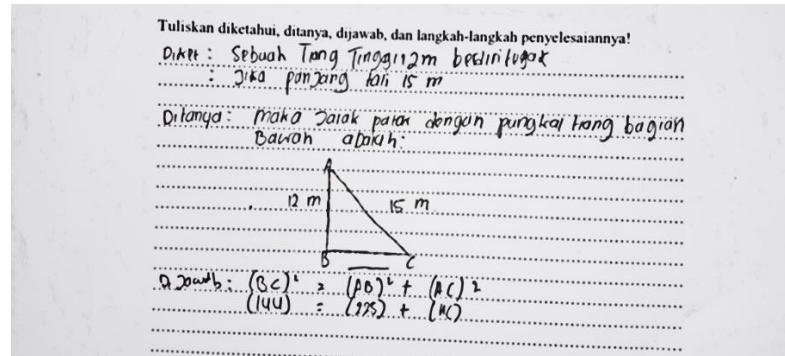 Tuliskan diketahui, ditanya, dijawab, dan langkah-langkah penyelesaiannya!
Diket : Sebuah Tiang Tinggi 12m berdiri tegak
: Jika panjang tali 15 m
Ditanya : maka Jarak patok dengan pungkal tiang bagian
Bawah adalah :
A
12 m 15 m
B C
Dijawab : (BC)² = (AB)² + (AC)²
(144) = (225) + (AC)